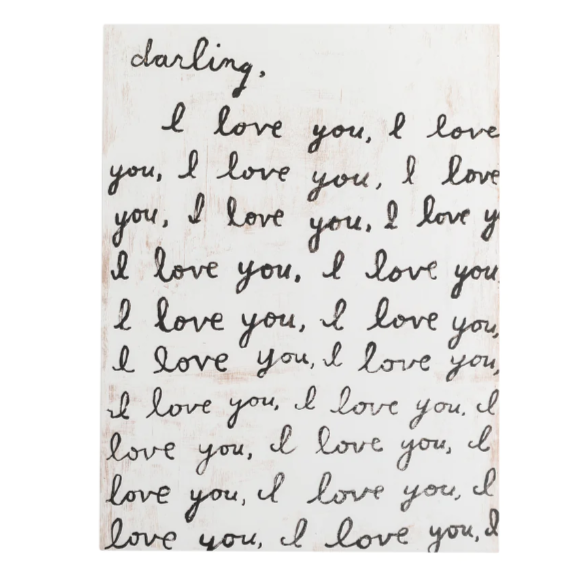 darling,
I love you, I love
you, I love you, I love
you, I love you, I love y
I love you, I love you
I love you, I love you,
I love you, I love you,
I love you, I love you, I
love you, I love you, I
love you, I love you, I
love you, I love you, I